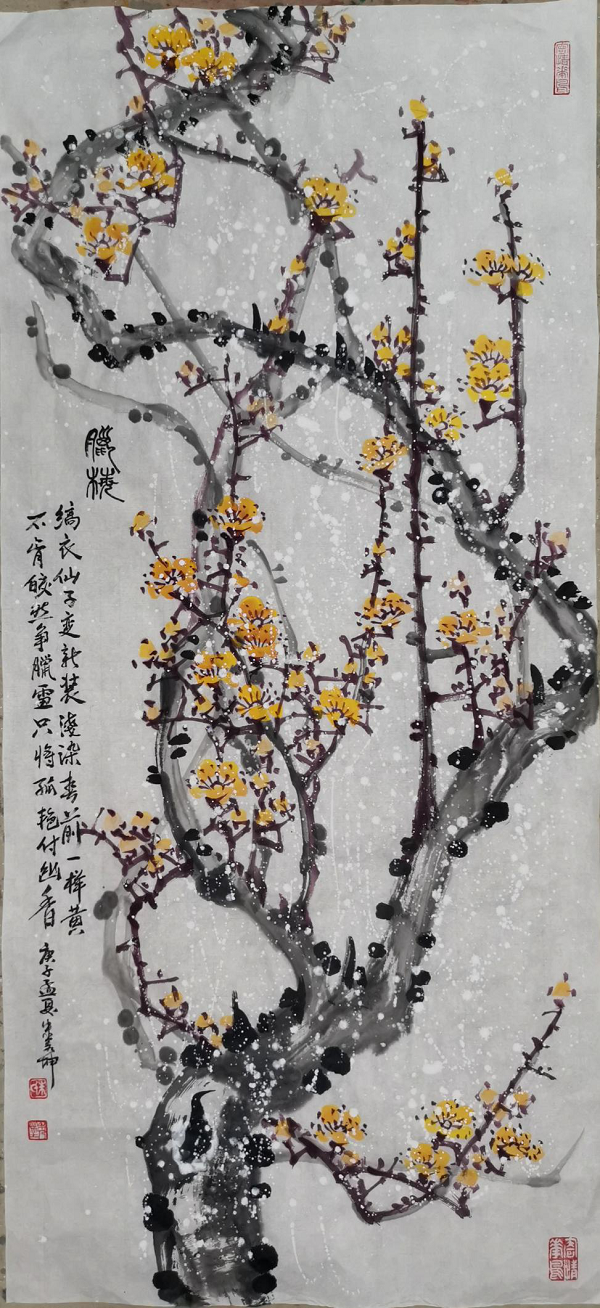 臘梅
縞衣仙子变新装淺染春前一样黄
不肯皎然争臘雪只将孤艳付幽香
庚子孟夏